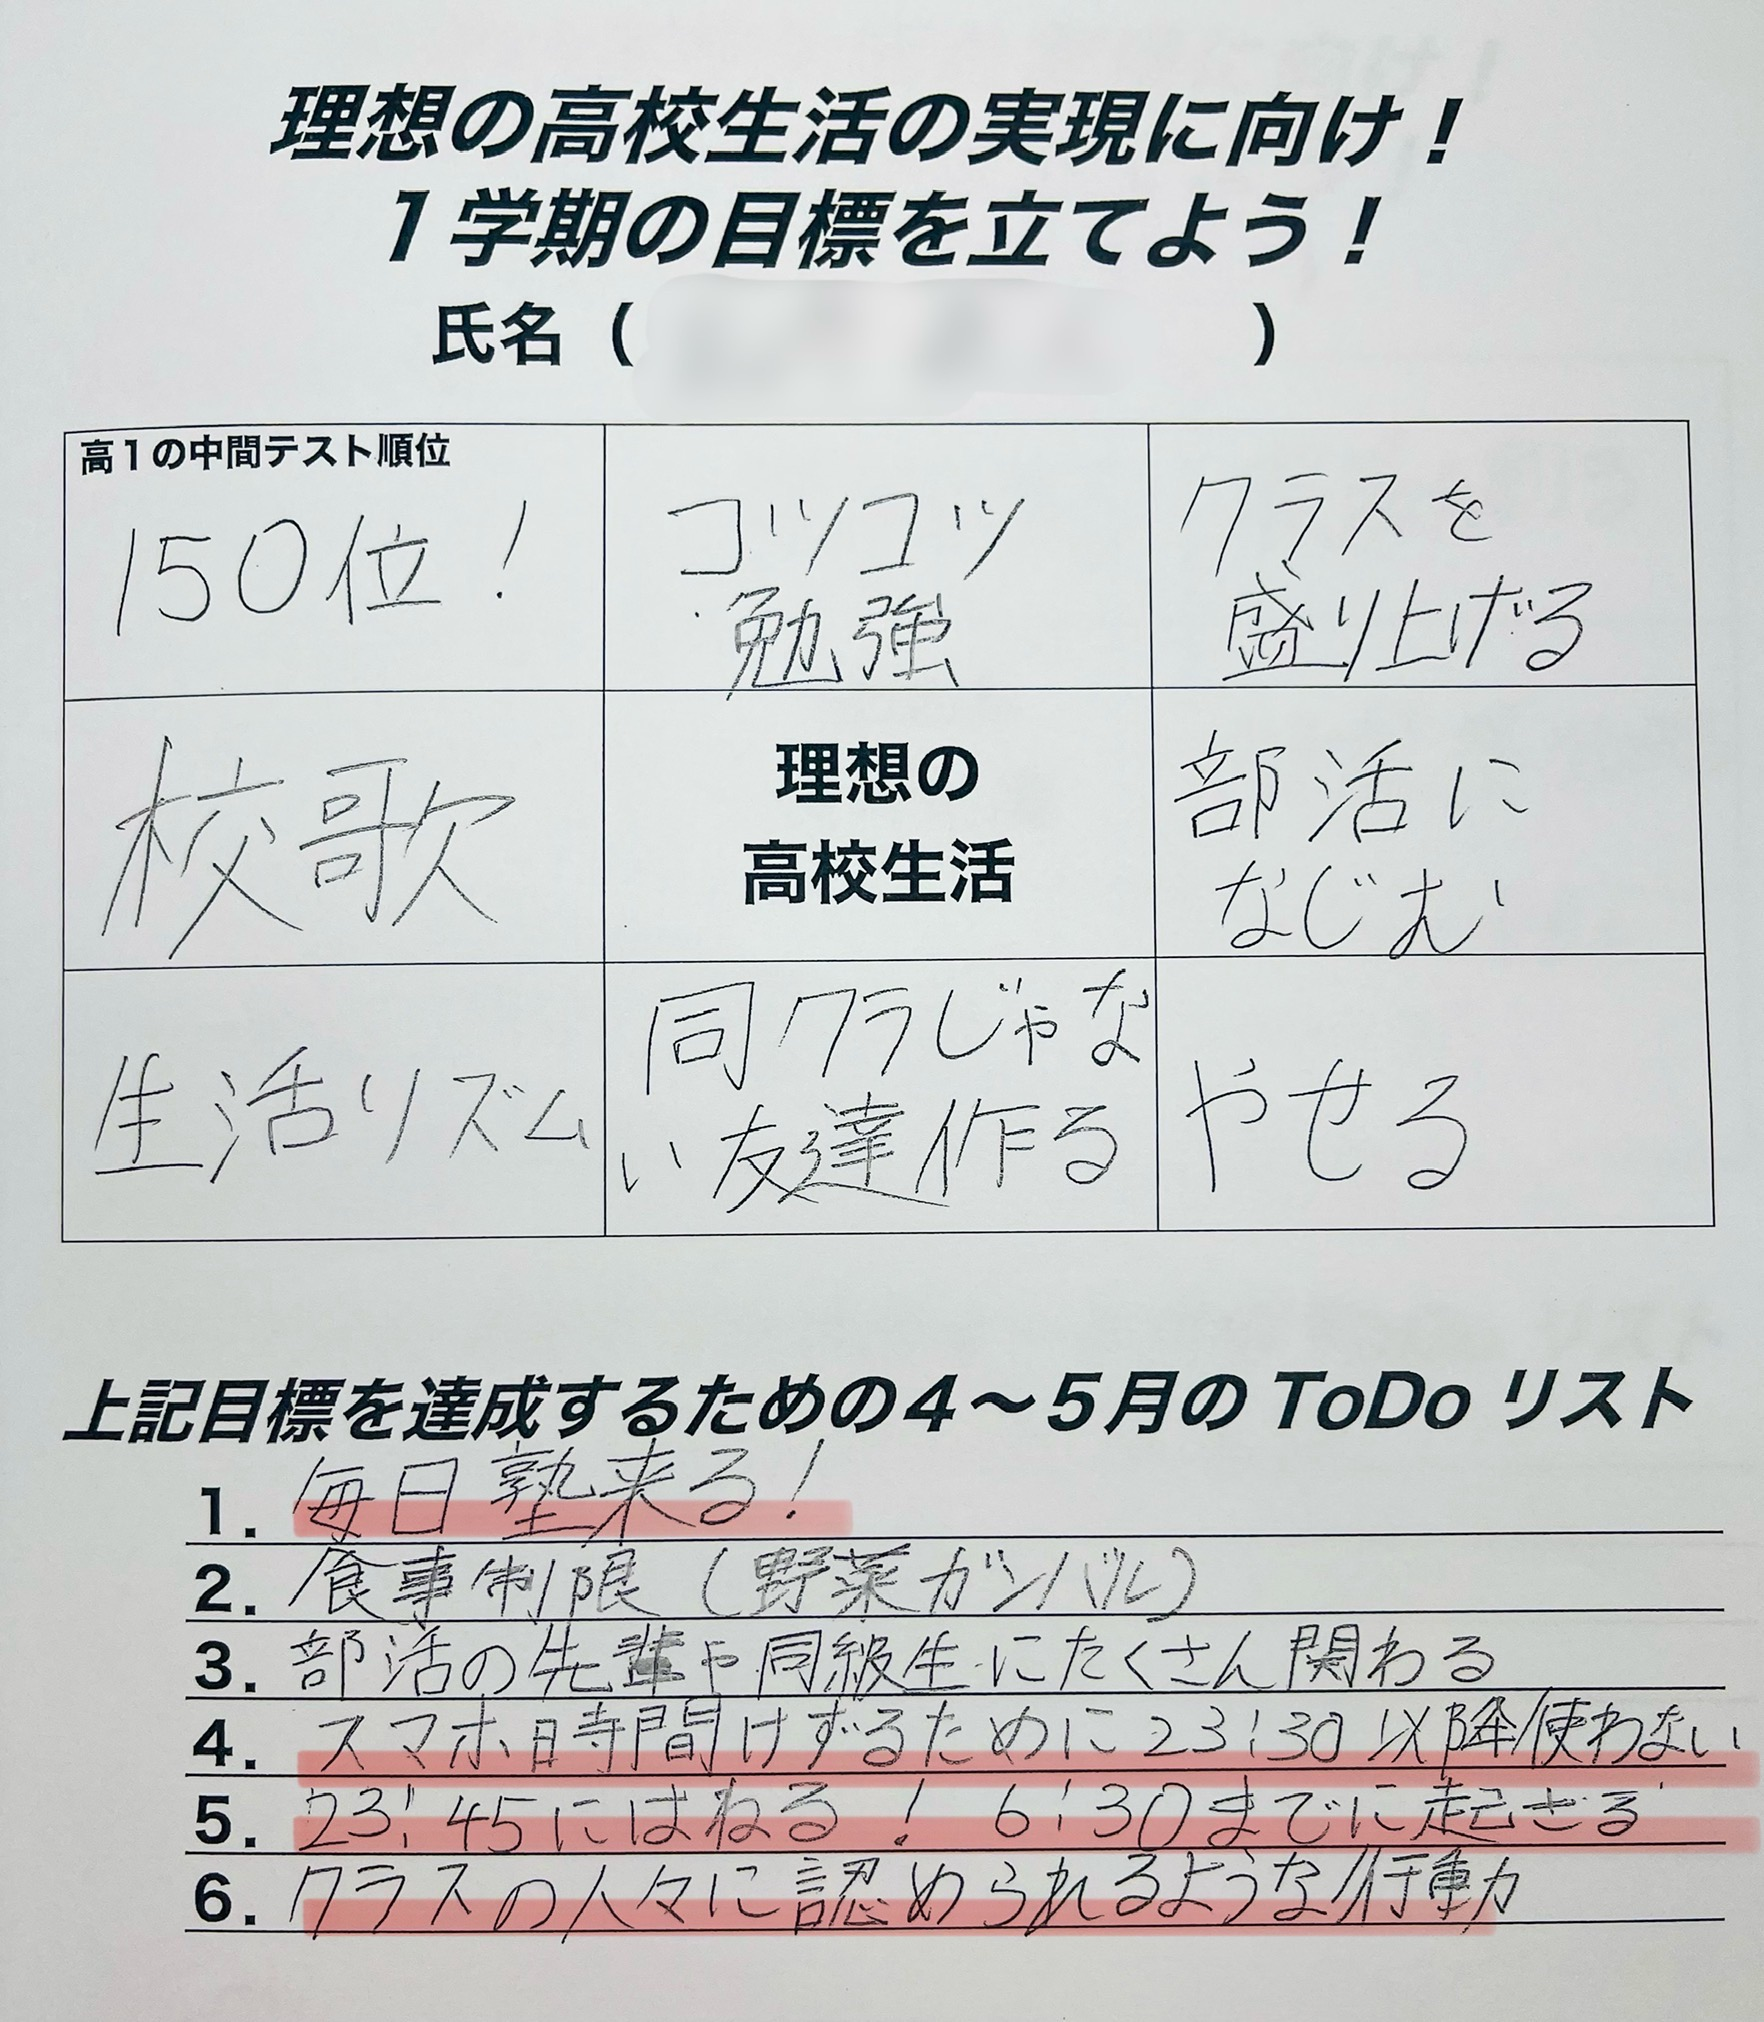 理想の高校生活の実現に向け！
１学期の目標を立てよう！
氏名（　　　）
高１の中間テスト順位
150位！
コツコツ
勉強
クラスを
盛り上げる
校歌
理想の
高校生活
部活に
なじむ
生活リズム
同クラじゃな
い友達作る
やせる
上記目標を達成するための４～５月の ToDo リスト
1. 毎日塾来る！
2. 食事制限（野菜ガンバル）
3. 部活の先輩や同級生にたくさん関わる
4. スマホ時間けずるために23:30以降使わない
5. 23:45にはねる！ 6:30までに起きる
6. クラスの人々に認められるような行動